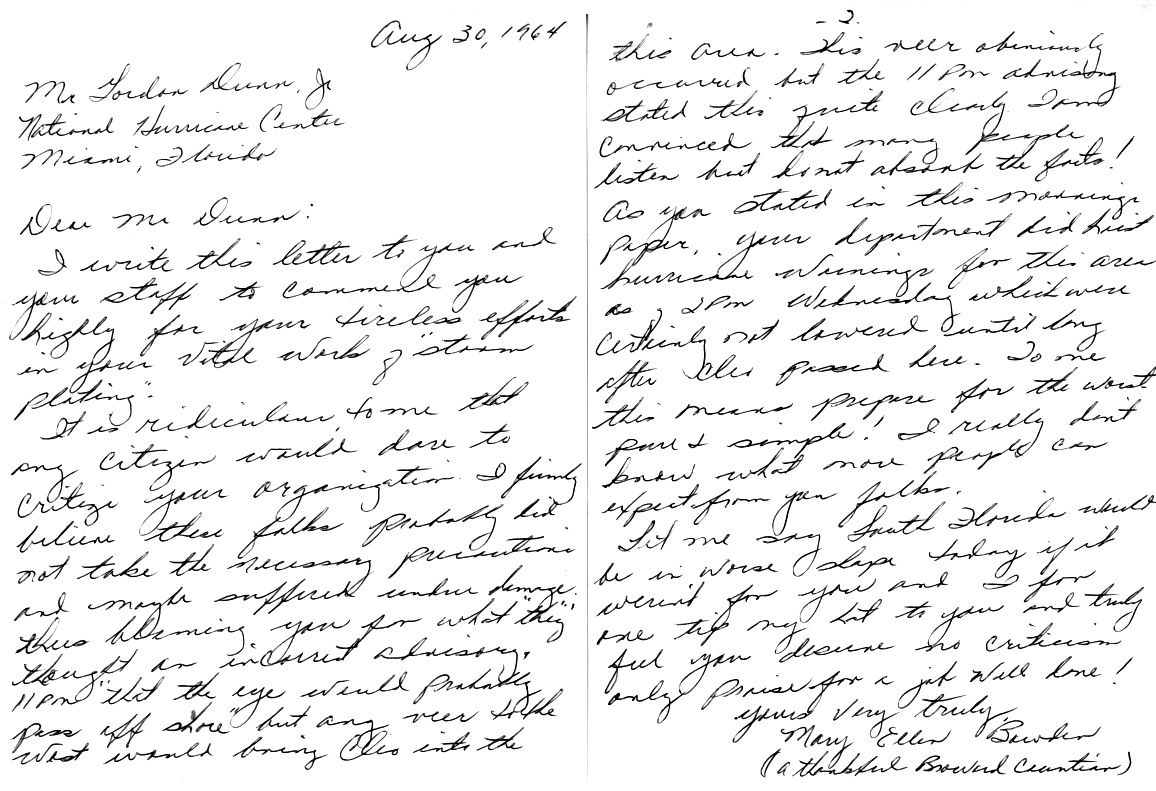 Aug 30, 1964
Mr Gordon Dunn, Jr
National Hurricane Center
Miami, Florida
Dear Mr Dunn:
I write this letter to you and
your staff to commend you
highly for your tireless efforts
in your vital work of "storm
plating".
It is ridiculous to me that
any citizen would dare to
critize your organization. I firmly
believe these folks probably did
not take the necessary precautions
and maybe suffered undue damage.
thus blaming you for what "they"
thought an incorrect advisory.
11 Pm "that the eye would probably
pass off shore" but any veer to the
West would bring Cleo into the
-2.
this area. This veer obviously
occurred but the 11 Pm advisory
stated this quite clearly I am
convinced that many people
listen but do not absorb the facts!
As you stated in this mornings
paper, your department did hoist
hurricane warnings for this area
as of 2 Pm Wednesday which were
certainly not lowered until long
after Cleo passed here. To me
this means prepare for the worst
pure & simple! I really don't
know what more people can
expect from you folks.
Let me say South Florida would
be in worse shape today if it
weren't for you and I for
one tip my hat to you and truly
feel you deserve no criticism
only praise for a job well done!
yours very truly,
Mary Ellen Bowden
(a thankful Broward Countian)